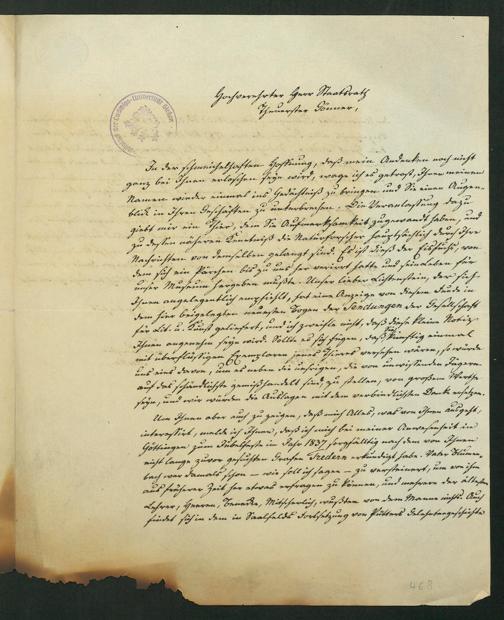 Hochverehrter Herr Staatsrath
Theuerster Gönner,
In der schmeichelhaften Hoffnung, daß mein Andenken noch nicht
ganz bei Ihnen erloschen seyn wird, wage ich es getrost, Ihnen meinen
Namen wieder einmal ins Gedächtniß zu bringen und Sie einen Augen-
blick in Ihren Geschäften zu unterbrechen. Die Veranlassung dazu
giebt mir ein Thier, dem Sie Aufmerksamkeit zugewandt haben, und
zu dessen näheren Kenntniß die Naturforscher hauptsächlich durch Ihre
Nachrichten von demselben gelangt sind. Es ist dieses der Eisfuchs, von
dem sich ein Pärchen bis zu uns her verirrt hatte und sein Leben für
unser Museum hergeben mußte. Unser lieber Lichtenstein, der sich
Ihnen angelegentlich empfiehlt, hat eine Anzeige von diesem Funde in
dem hier beigelegten neuesten Bogen der Sendungen der Gesellschaft
für Lit. u. Kunst geliefert, und ich zweifle nicht, daß diese kleine Notiz
Ihnen angenehm seyn wird. Sollte es sich fügen, daß Sie künftig einmal
mit überflüssigen Exemplaren jenes Thieres versehen wären, so würde
uns eins davon, um es neben die unsrigen, die von unwissenden Jägern
auf das schändlichste gemißhandelt sind, zu stellen, von großem Werthe
seyn, und wir würden die Auslagen mit dem verbindlichsten Danke ersetzen.
Um Ihnen aber auch zu zeigen, daß mich Alles, was von Ihnen ausgeht,
interessirt, melde ich Ihnen, daß ich mich bei meiner Anwesenheit in
Göttingen zum Jubelfeste im Jahr 1837 sorgfältig nach dem von Ihnen
nicht lange zuvor gesuchten Grafen Bredern erkundigt habe. Vater Blumen-
bach war damals schon – wie soll ich sagen – zu versteinert, um von ihm
aus früherer Zeit her etwas erfragen zu können, und mehrere der ältesten
Lehrer, Heeren, Benecke, Mitscherlich, wußten von dem Manne nichts. Auch
findet sich in dem in Saalfelds Fortsetzung von Pütters Gelehrtengeschichte
468